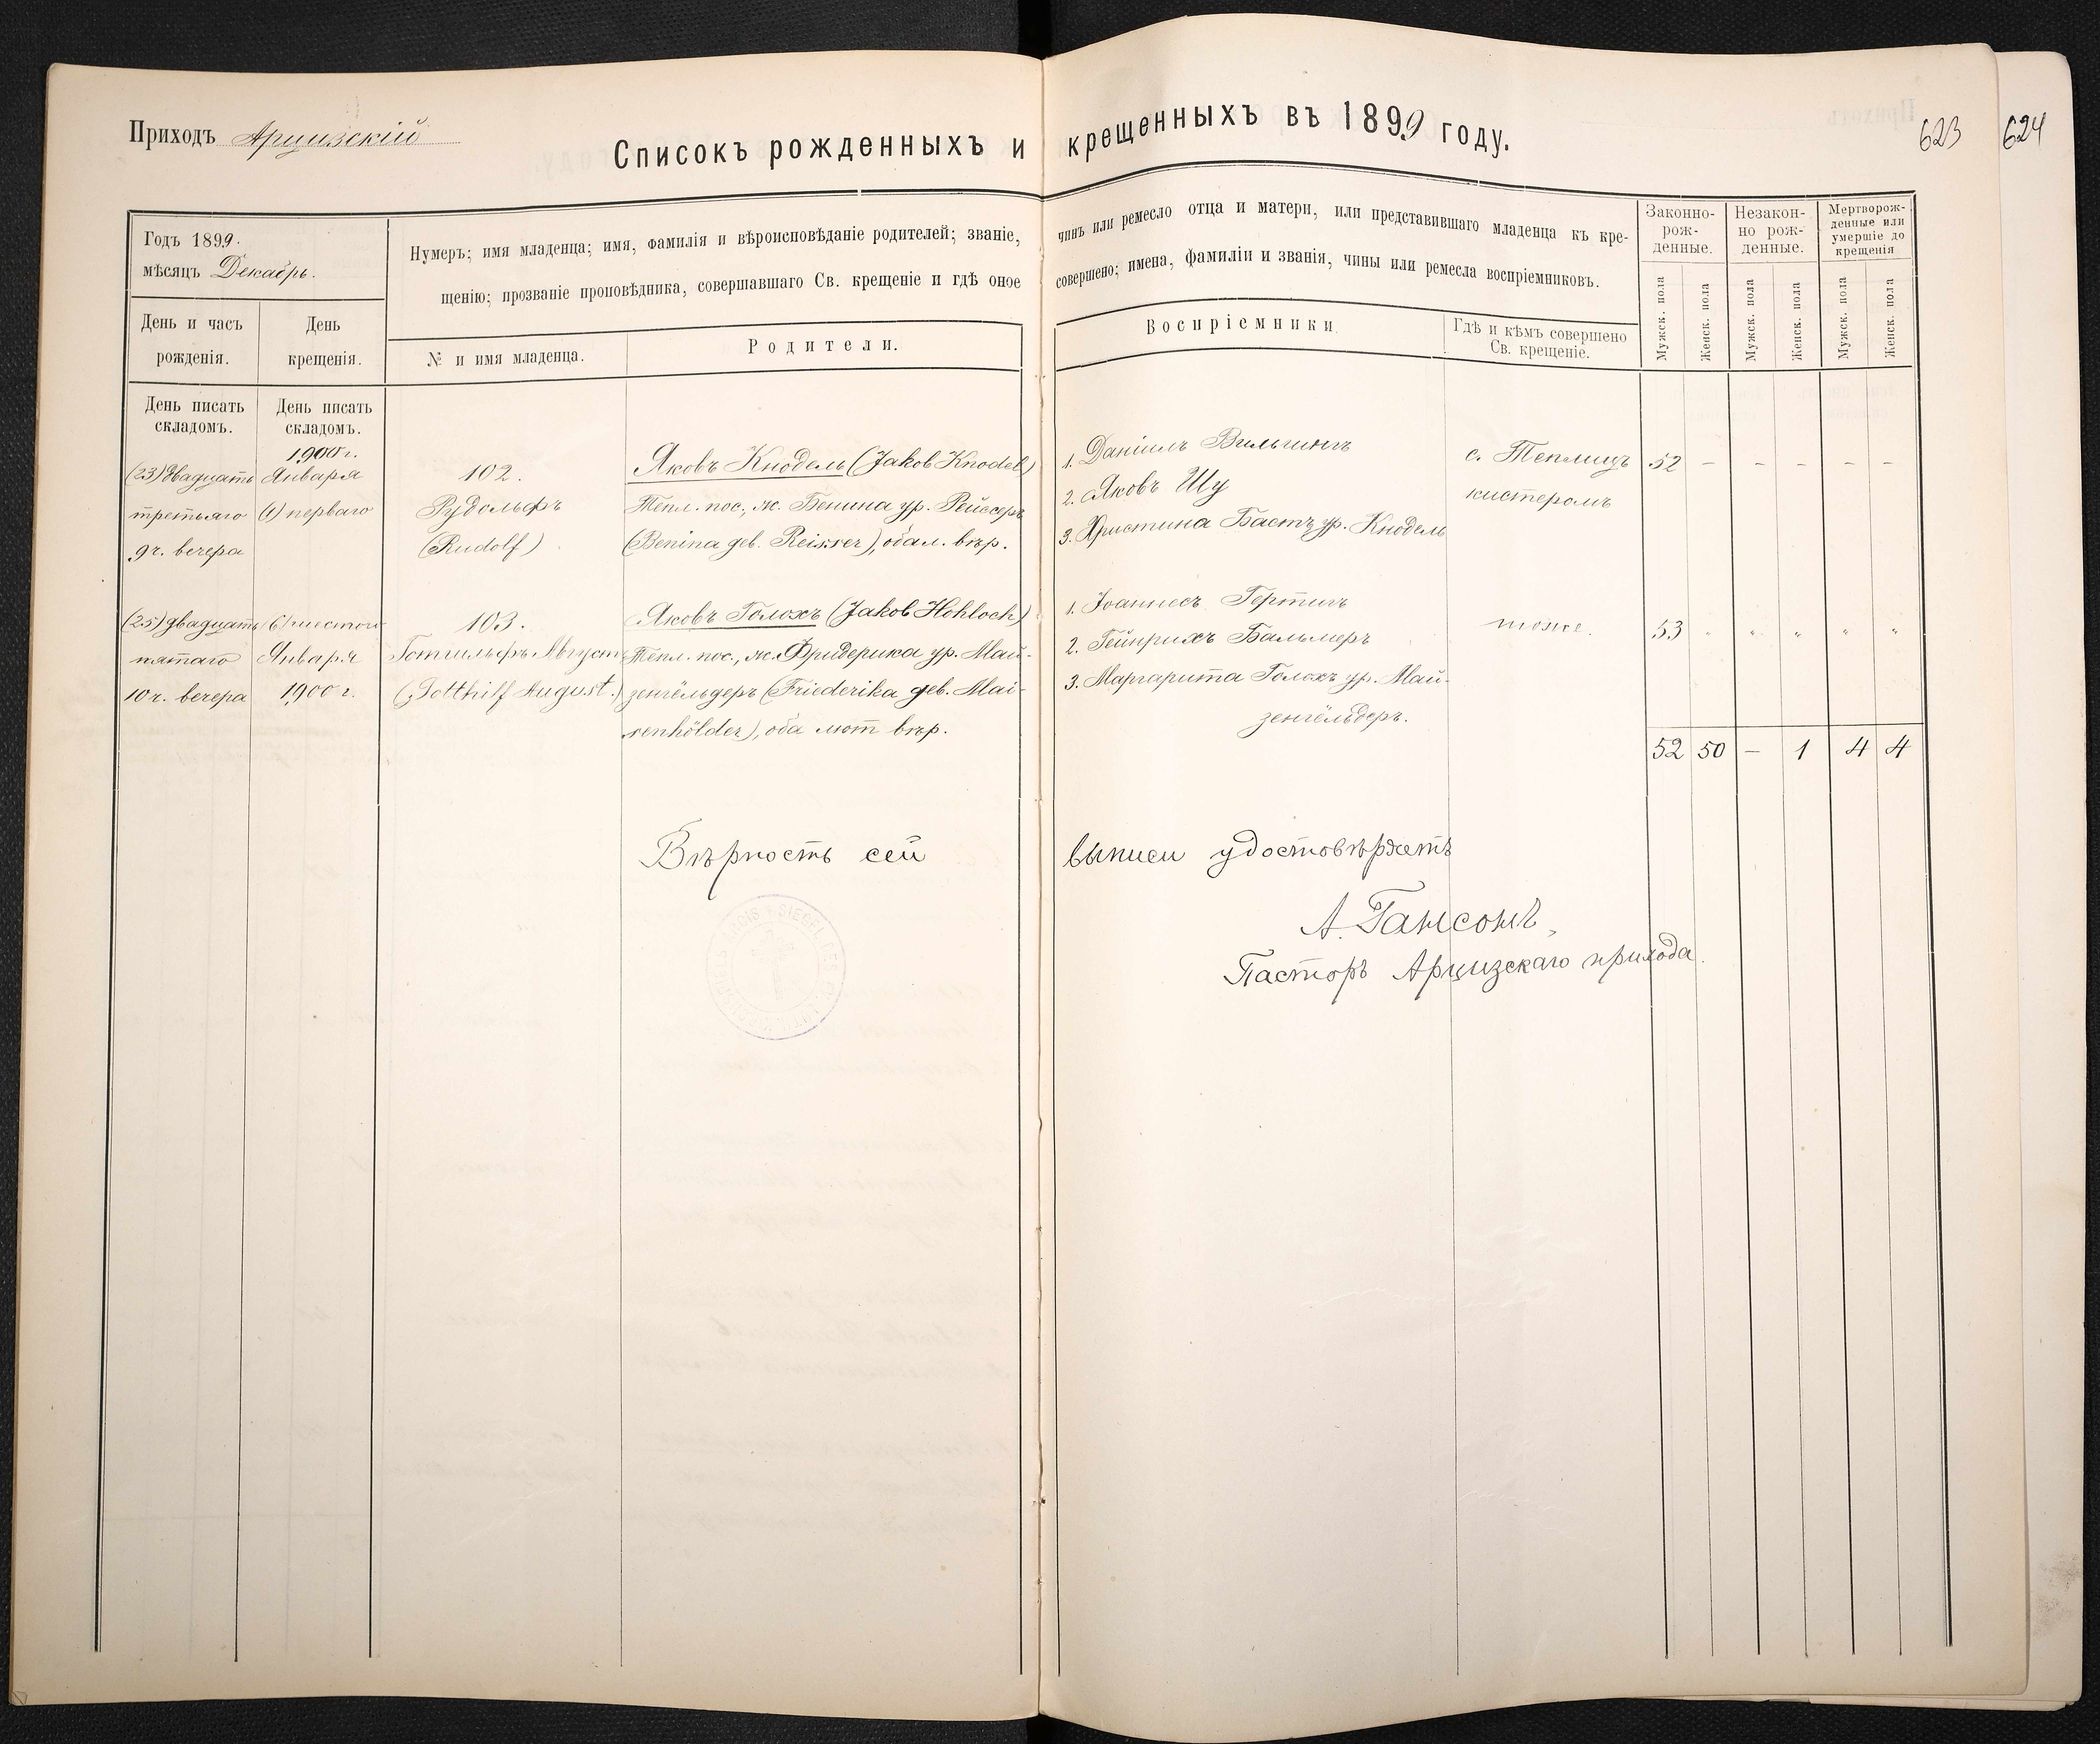 Приходъ Арцизскій
Списокъ рожденныхъ и крещенныхъ въ 1899 году.
623
624
Годъ 1899.
мѣсяцъ Декабрь.
Нумеръ; имя младенца; имя, фамилія и вѣроисповѣданіе родителей; званіе, чинъ или ремесло отца и матери, или представившаго младенца къ кре-
щенію; прозваніе проповѣдника, совершавшаго Св. крещеніе и гдѣ оное совершено; имена, фамиліи и званія, чины или ремесла воспріемниковъ.
Законно-
рож-
денные.
Незакон-
но рож-
денные.
Мертворож-
денные или
умершіе до
крещенія
День и часъ
рожденія.
День
крещенія.
№ и имя младенца.
Родители.
Воспріемники.
Гдѣ и кѣмъ совершено
Св. крещеніе.
Мужск. пола
Женск. пола
Мужск. пола
Женск. пола
Мужск. пола
Женск. пола
День писать
складомъ.
День писать
складомъ.
(23) двадцать
третьяго
9 ч. вечера
1900 г.
Января
(1) перваго
102.
Рудольфъ
(Rudolf)
Яковъ Кнодель (Jakob Knodel)
Тепл. пос., ж. Бенина ур. Рейссеръ
(Benina geb. Reisser), оба л. вѣр.
1. Даніилъ
2. Яковъ Шу
3. Христина Бастъ ур. Кнодель
с. Теплицъ
кистеромъ
52 – – – – –
(25) двадцать
пятаго
10 ч. вечера
(6) шестого
Января
1900 г.
103.
Готгильфъ Августъ
(Gotthilf August.)
Яковъ Голохъ (Jakob Hohloch)
Тепл. пос., ж. Фридерика ур. Май-
зенгёльдеръ (Friederika geb. Mai-
senhölder), оба лют. вѣр.
1. Іоаннесъ Гертигъ
2. Гейнрихъ Бальмеръ
3. Маргарита Голохъ ур. Май-
зенгёльдеръ.
тоже.
53 " " " " "
52 50 – 1 4 4
Вѣрность сей выписи удостовѣряетъ
А. Гансонъ,
Пасторъ Арцизскаго прихода.